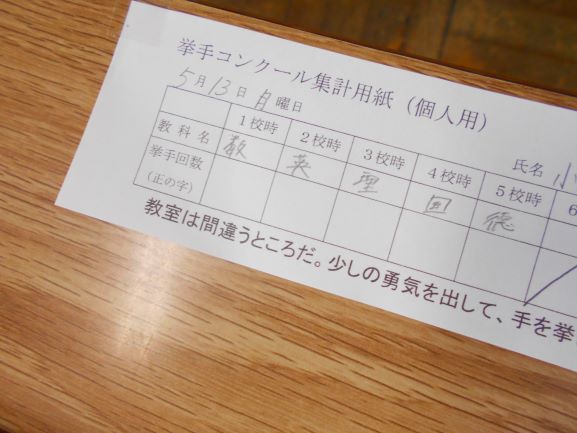 挙手コンクール集計用紙（個人用）
5月13日月曜日
氏名 小
1校時 2校時 3校時 4校時 5校時 6
教科名 数 英 理 国 徳
挙手回数
(正の字)
教室は間違うところだ。少しの勇気を出して、手を挙